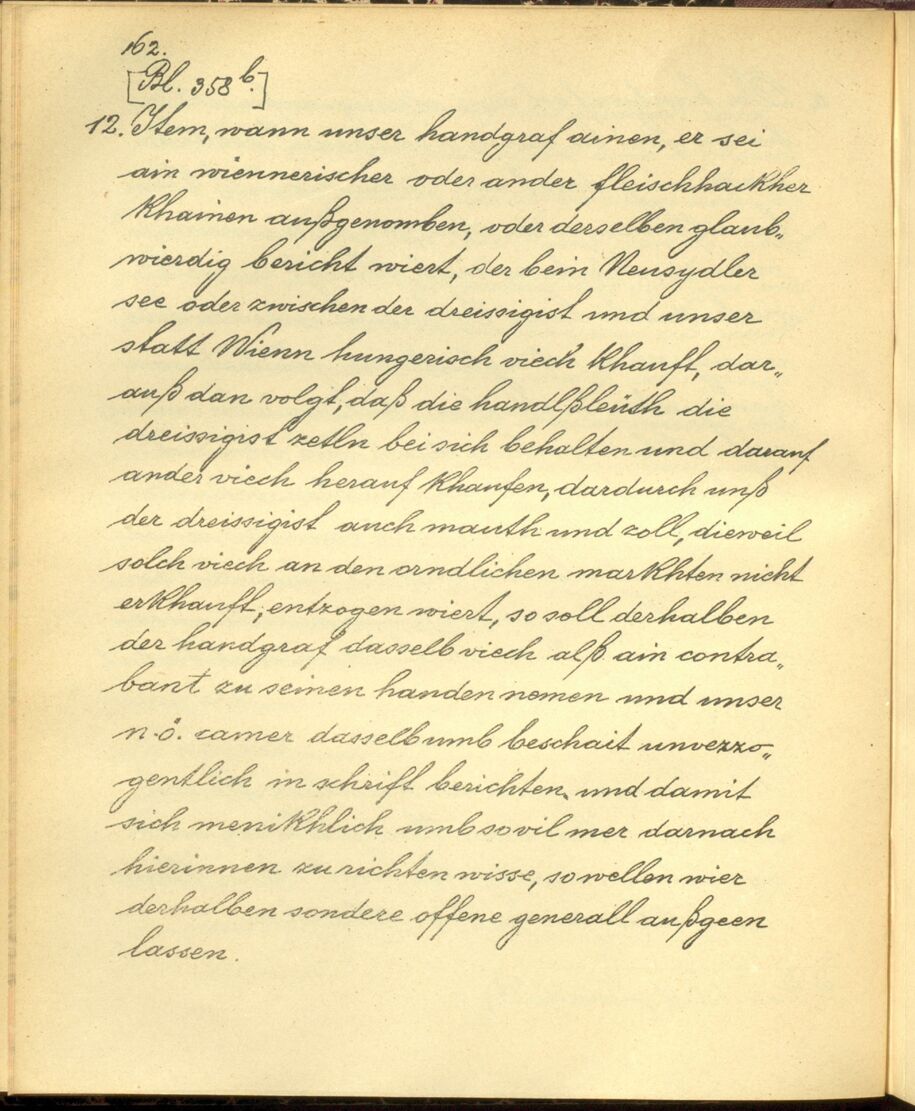 162.
[Bl. 358 b.]
12. Item, wann unser handgraf ainen, er sei
ain wiennerischer oder ander fleischhackher
khainen außgenomben, oder derselben glaub„
wierdig bericht wiert, der beim Neusydler
see oder zwischen der dreissigist und unser
statt Wienn hungerisch viech khauft, dar„
auß dan volgt, daß die handlßleüth die
dreissigist zetln bei sich behalten und darauf
ander viech herauf khaufen, dardurch unß
der dreissigist auch mauth und zoll, dieweil
solch viech an den orndlichen markhten nicht
erkhauft, entzogen wiert, so soll derhalben
der handgraf dasselb viech alß ain contra„
bant zu seinen handen nemen und unser
n.ö. camer dasselb umb beschait unverzo„
gentlich in schrift berichten. und damit
sich menikhlich umb so vil mer darnach
hierinnen zu richten wisse, so wellen wier
derhalben sondere offene generall außgeen
lassen.